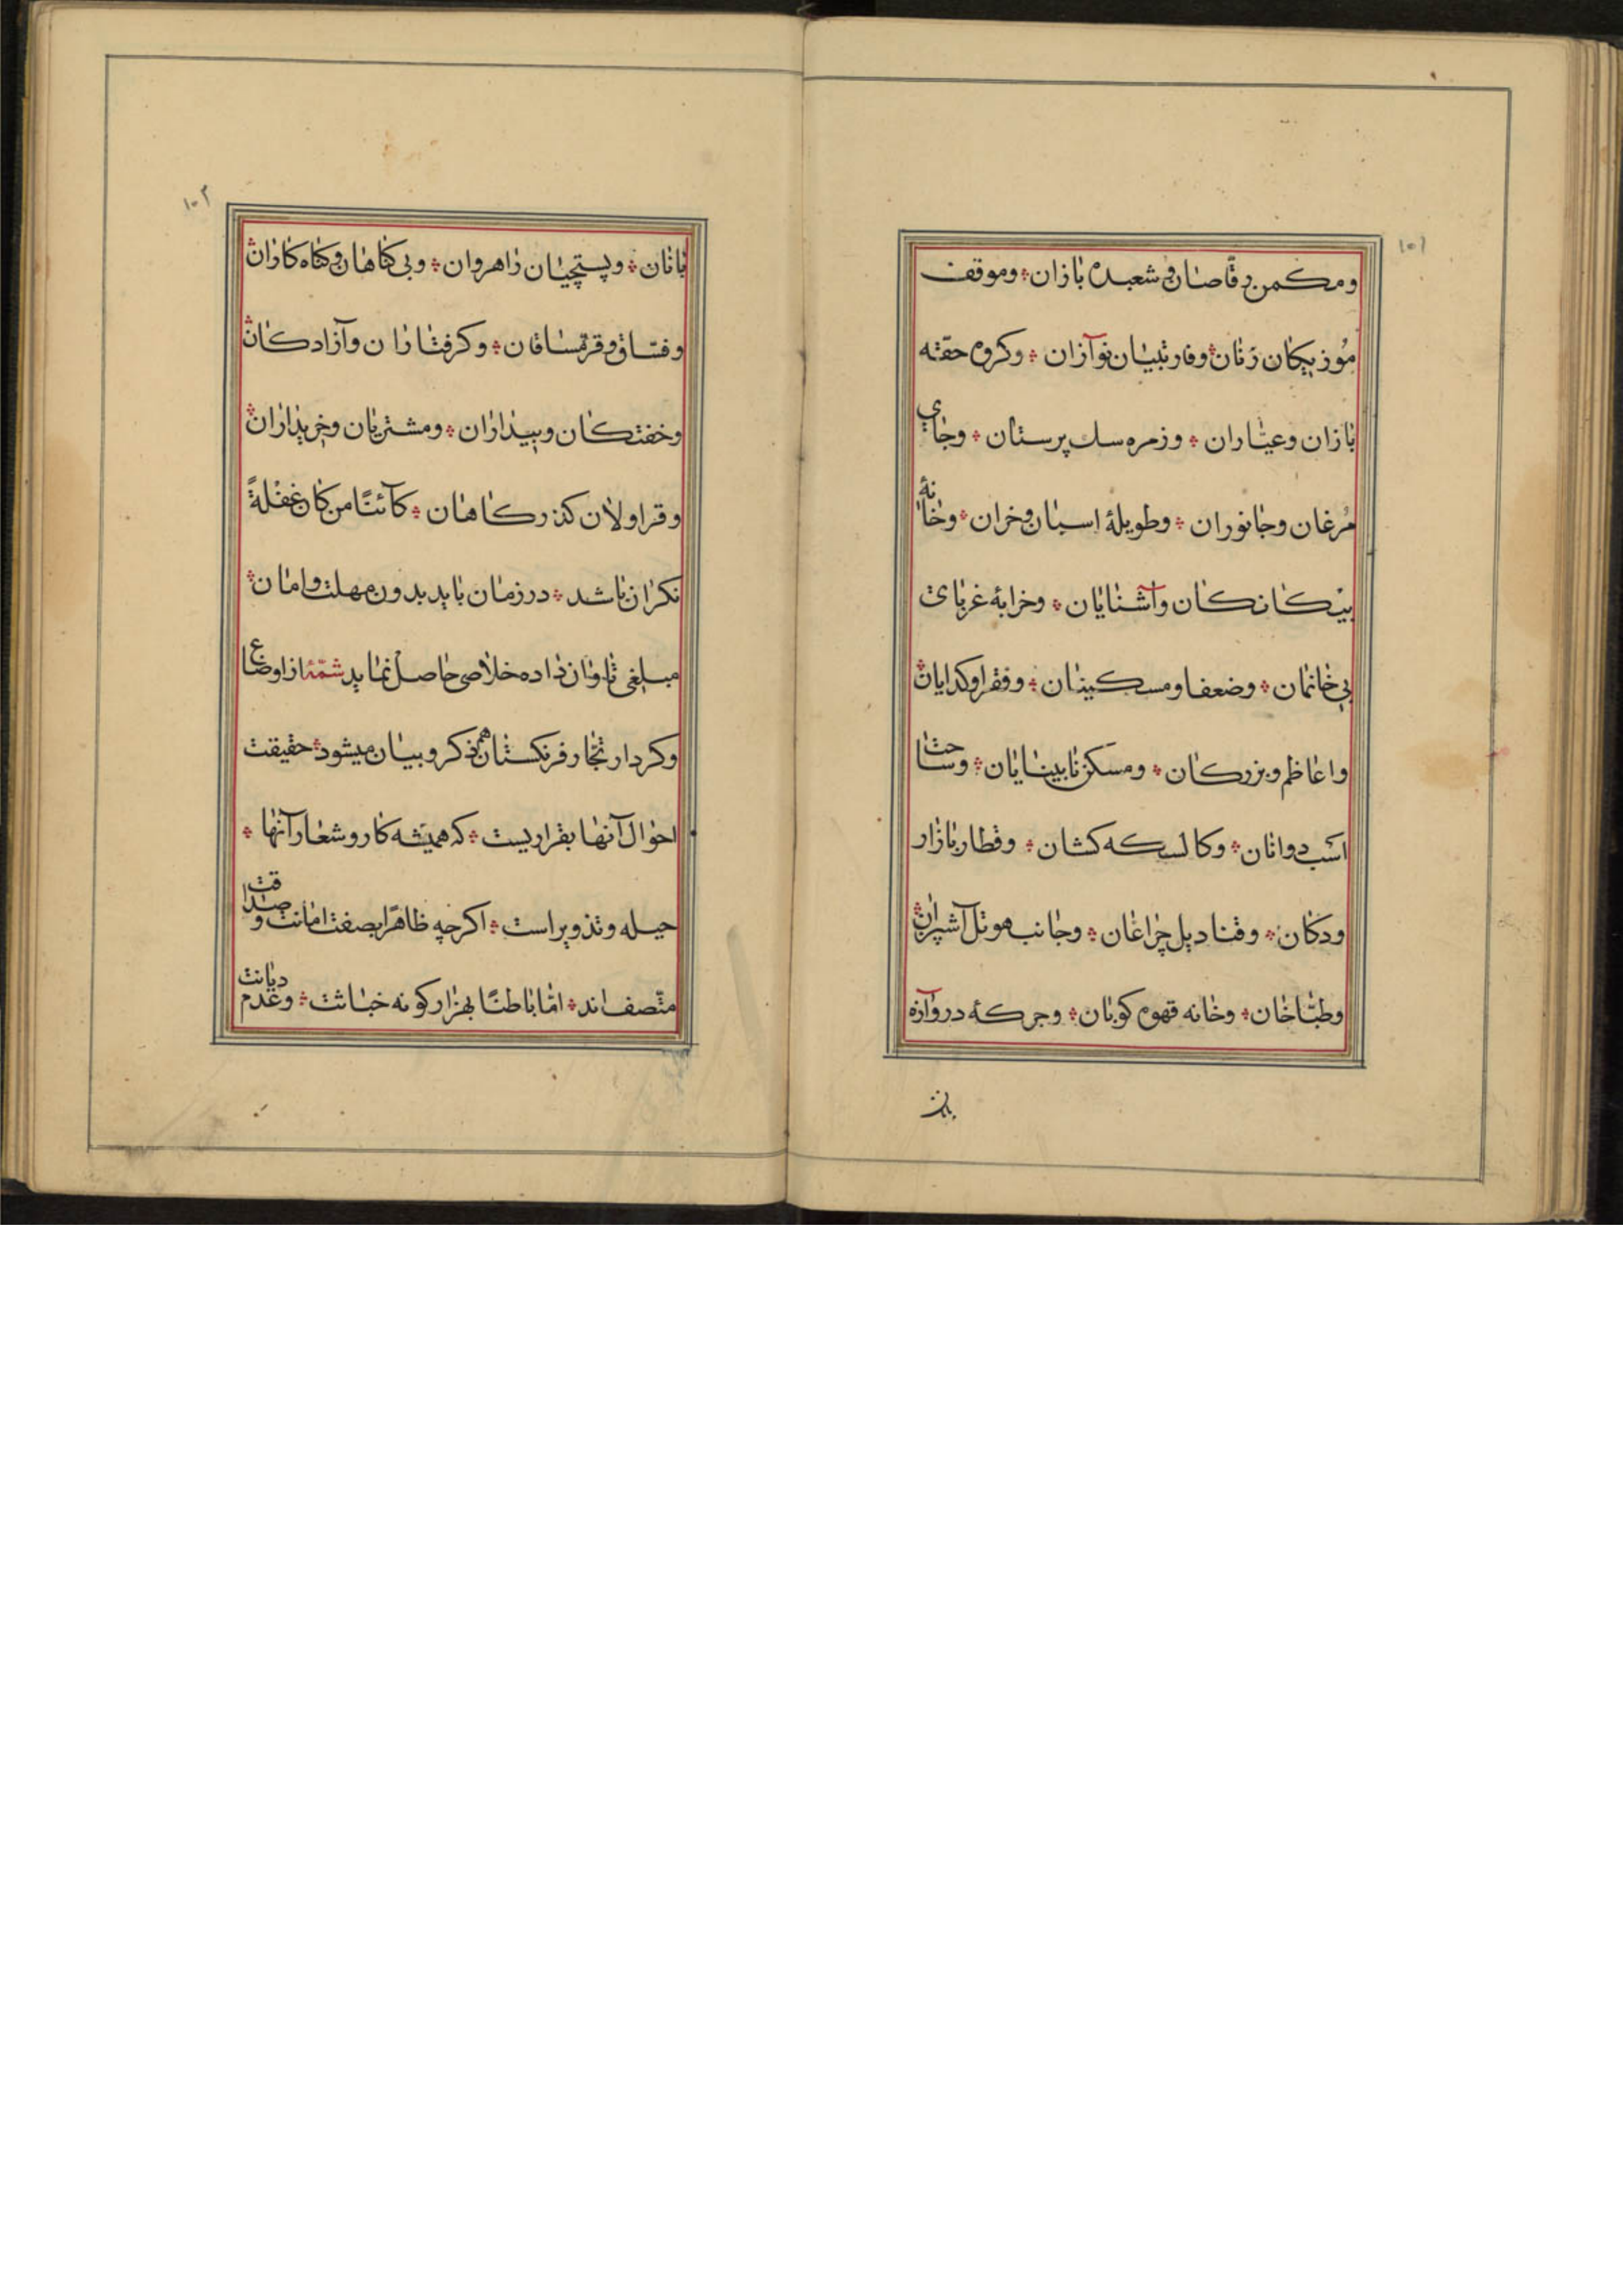 ۱۰۱
ومکمن رقّاصان و شعبده بازان ؞ وموقف
مُوزیکان زنان ؞ وفارتپیان نوآزان ؞ وکروه حقّه
بازان وعیّاران ؞ وزمره سك پرستان ؞ وجای
مرغان وجانوران ؞ وطویلهٔ اسبان وخران ؞ وخانهٔ
بیکانکان وآشنایان ؞ وخرابهٔ غربای
بی خانمان ؞ وضعفا ومسکینان ؞ وفقرا وکدایان ؞
واعاظم وبزرکان ؞ ومسکن نابینایان ؞ وساحت
اسب دوانان ؞ وکالسکه کشان ؞ وقطار بازار
ودکان ؞ وقنادیل چراغان ؞ وجانب موتل آشپزان ؞
وطبّاخان ؞ وخانه قهوه کوبان ؞ وجرکهٔ دروآزه
بانان
۱۰۲
بانان ؞ وپستچیان راهروان ؞ وبی کناهان وکناه کاران ؞
وفسّاق وقرمساقان ؞ وکرفتاران وآزادکان ؞
وخفتکان وبیداران ؞ ومشتریان وخریداران ؞
وقراولان کذرکاهان ؞ کآئنًا من کان غفلةً
نکران باشد ؞ درزمان باید بدون مهلت وامان ؞
مبلغی تاوان داده خلاصی حاصل نماید شمّهٔ ازاوضاع
وکردار تجّار فرنکستان هم ذکر وبیان میشود ؞ حقیقت
احوال آنها بقراریست ؞ که همیشه کار وشعار آنها ؞
حیله وتذویر است ؞ اکرچه ظاهرًا بصفت امانت وصداقت
متّصف اند ؞ امّا باطنًا بهزار کونه خباثت ؞ وعدم دیانت